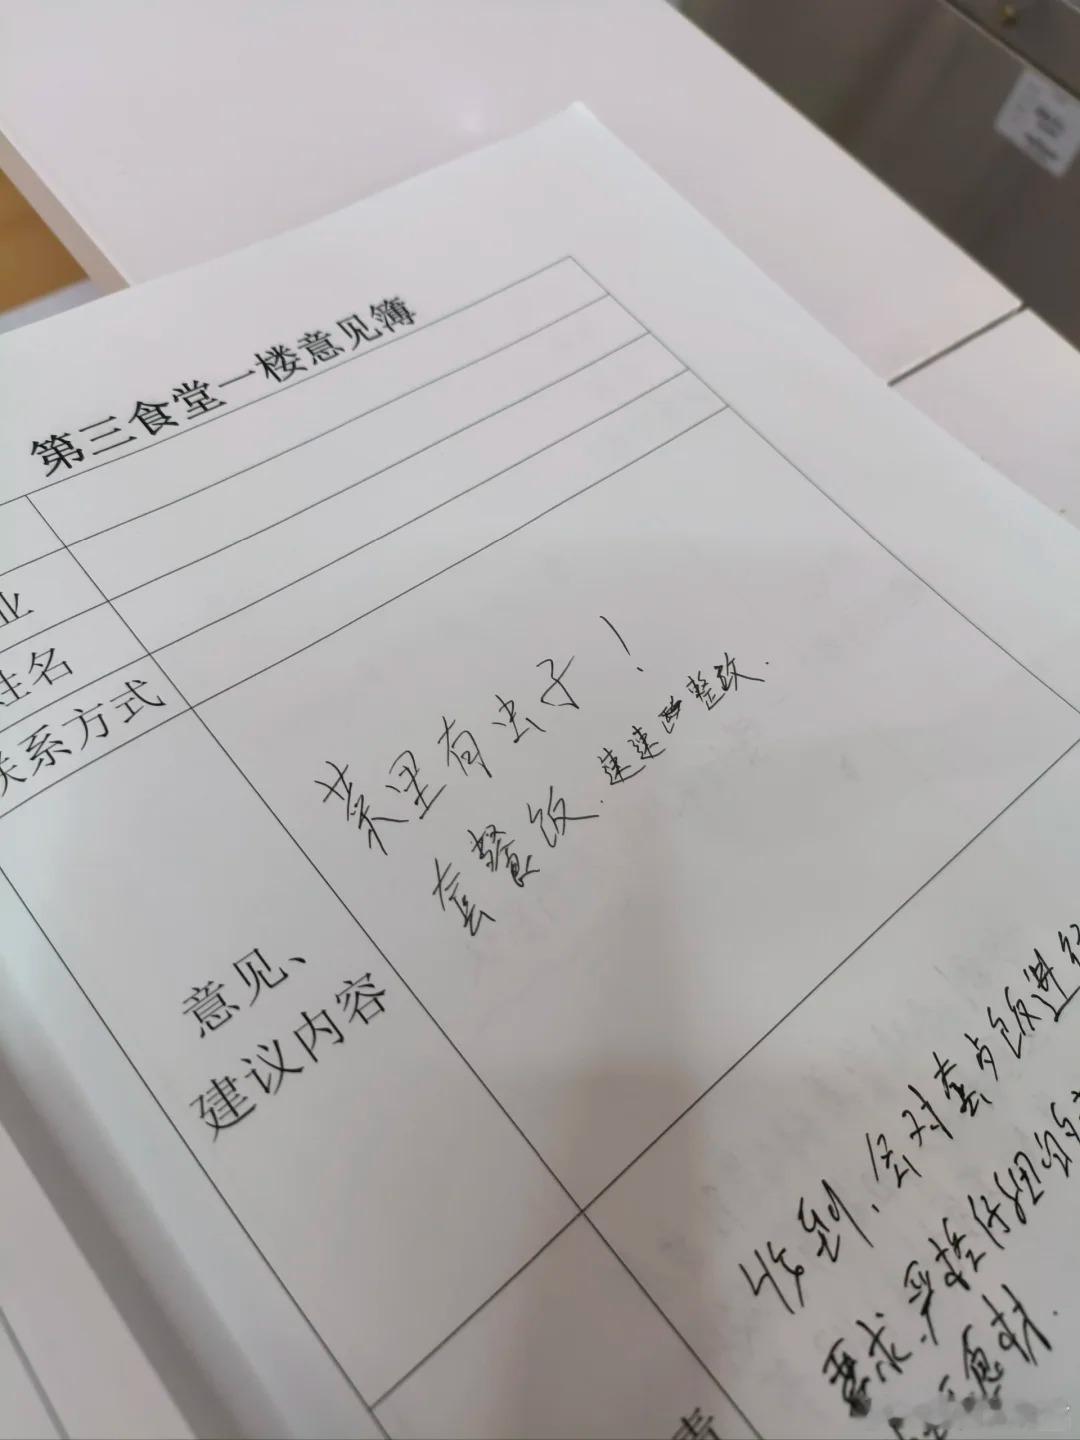 第三食堂一楼意见簿
业
姓名
联系方式
菜里有虫子!
套餐饭.速速整改.
意见、
建议内容
收到.会对套餐饭进行
要求.严格
食材.
责